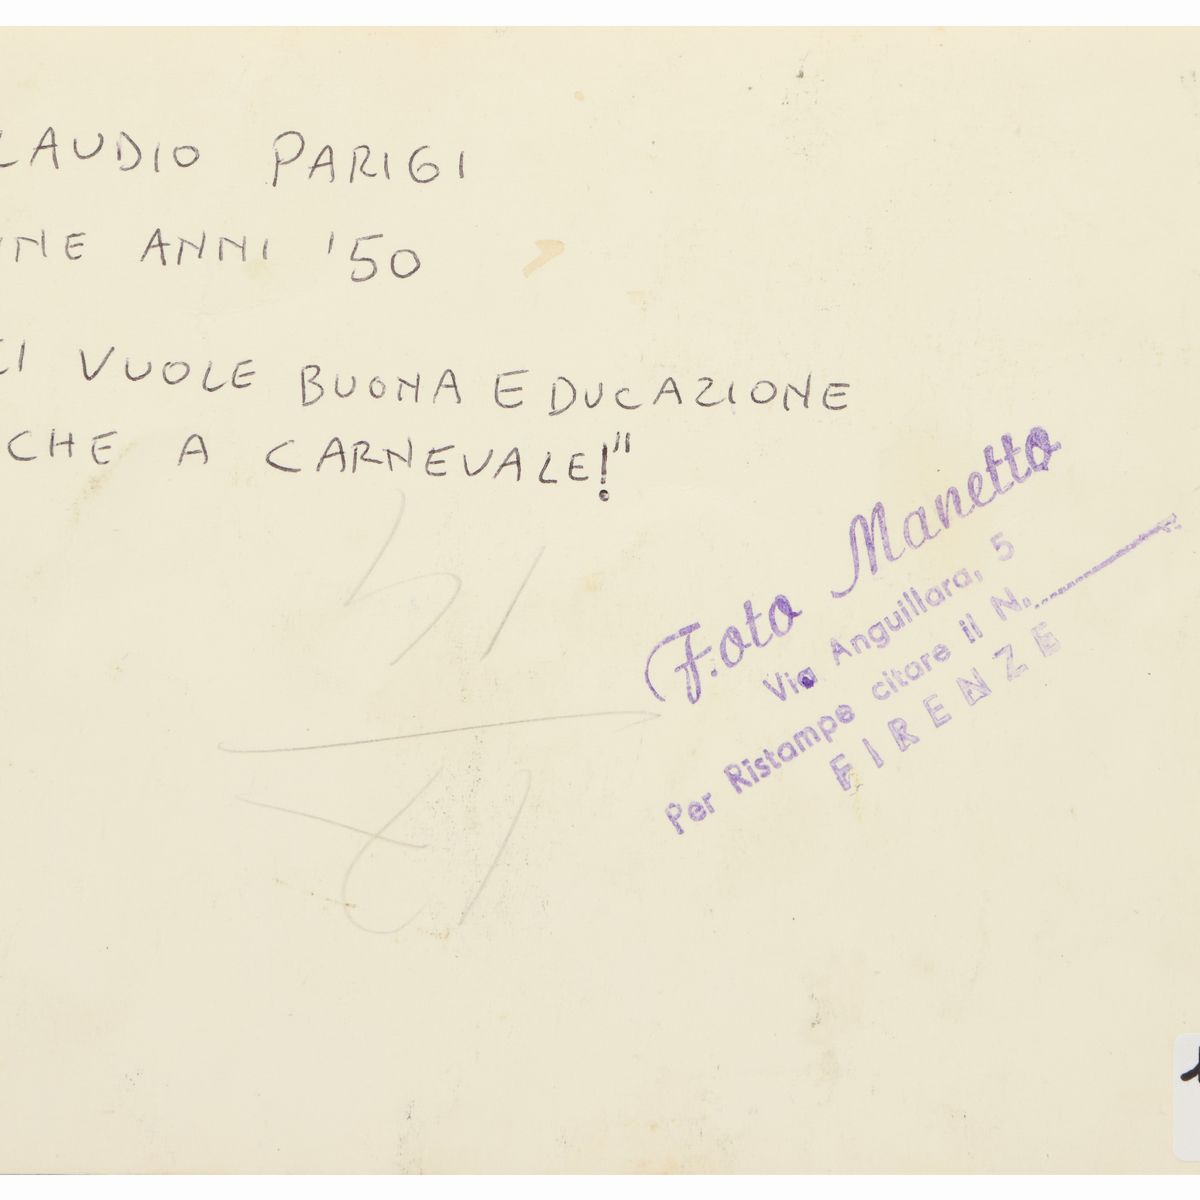 LAUDIO PARIGI
NE ANNI '50
CI VUOLE BUONA EDUCAZIONE
CHE A CARNEVALE!"
Foto Manetto
Via Anguillara, 5
Per Ristampe citare il N.
FIRENZE